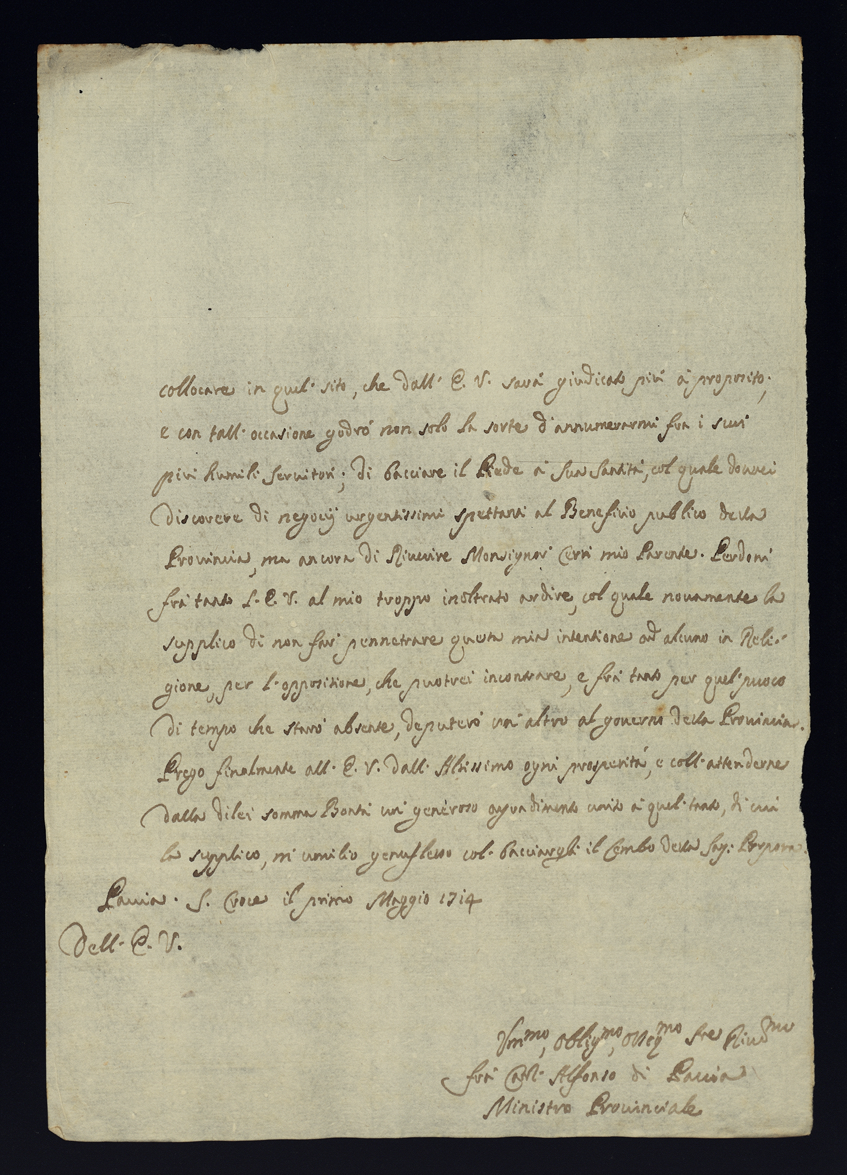 collocare in quel' sito, che dall' E. V. sará giudicato piú á proposito;
e con tall' occasione godró non solo la sorte d'annumerarmi fra i suoi
piú humili servitori; di bacciare il Piede á Sua Santitá, col quale dovrei
discorere di negocij urgentissimi spettanti al Beneficio publico della
Provincia, ma ancora di Riverire Monsignor' Cerri mio Parente. Perdoni
frá tanto l'E. V. al mio troppo inoltrato ardire, col quale novamente la
supplico di non far' pennetrare questa mia intentione ad alcuno in Reli-
gione, per l'oppositione, che puotrei incontrare, e frá tanto per quel' puoco
di tempo che staró absente, deputeró un' altro al governo della Provincia.
Prego finalmente all' E. V. dall' Altissimo ogni prosperitá, e coll' attenderne
dalla dilei somma Bontá un' generoso aggradimento unito á quel' tanto, di cui
la supplico, mi umilio genuflesso col' bacciargli il Lembo della Sag: Porpora.
Pavia. S. Croce il primo Maggio 1714
Dell' E. V.
Um.mo, Oblig.mo, Osseq.mo Ser.
frá Carl' Alfonso di Pavia
Ministro Provinciale